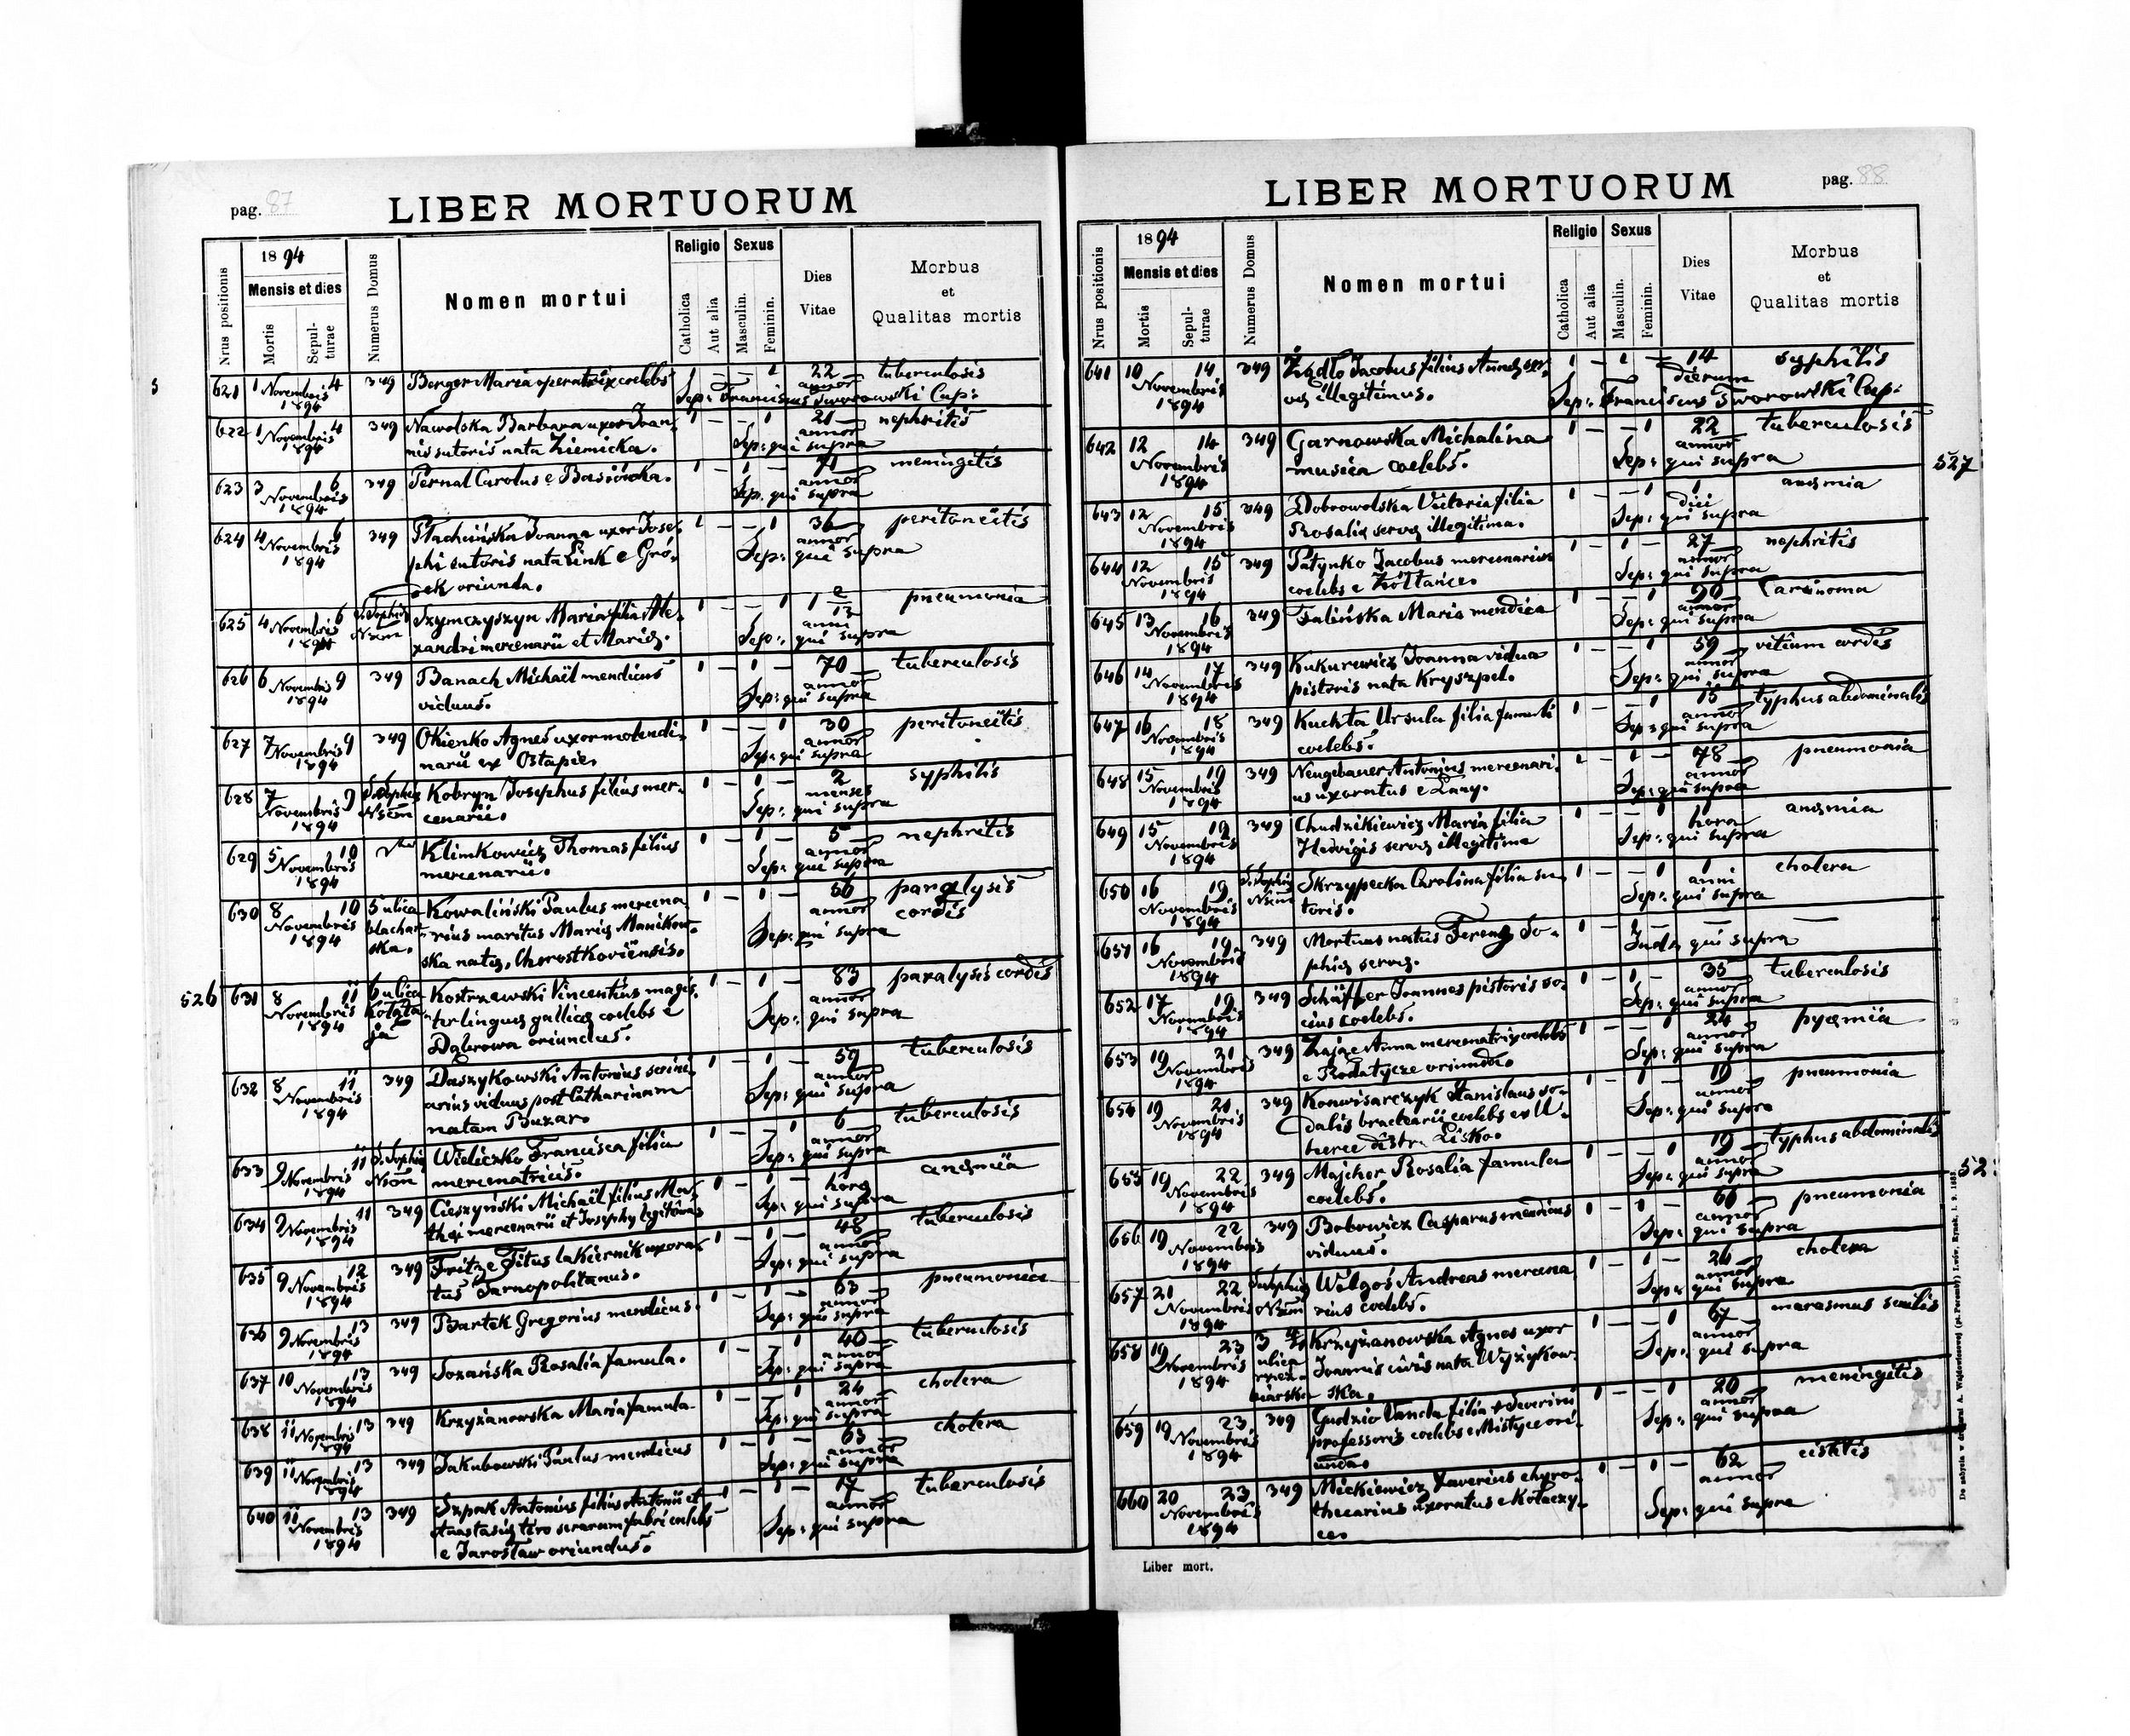 pag. 87
LIBER MORTUORUM
Nrus positionis
1894
Mensis et dies
Mortis
Sepul-
turae
Numerus Domus
Nomen mortui
Religio
Catholica
Aut alia
Sexus
Masculin.
Feminin.
Dies
Vitae
Morbus
et
Qualitas mortis
621 1 Novembris 4 349 Berger Maria operatrix coelebs 1 — — 1 22 tuberculosis
1894 annor Sep: Franciscus Sworowski Cap:
622 1 Novembris 4 349 Nawolska Barbara uxor Joan- 1 — — 1 21 nephritis
1894 nis sutoris nata Ziemicka. annor Sep: qui supra
623 3 6 349 Pernal Carolus e Basiówka. 1 — 1 — 71 meningitis
Novembris 1894 annor Sep. qui supra
624 4 6 349 Płachcińska Joanna uxor Jose- 1 — — 1 36 peritoneitis
Novembris phi sutoris nata Link e Gró- annor Sep: qui supra
1894 dek oriunda.
625 4 Novembris 6 S. Sophia Szymczyszyn Maria filia Ale- 1 — — 1 1 2/12 pneumonia
1894 Nsem xandri mercenarii et Mariæ. anni Sep: qui supra
626 6 Novembris 9 349 Banach Michaël mendicus 1 — 1 — 70 tuberculosis
1894 viduus. annor Sep: qui supra
627 7 Novembris 9 349 Okienko Agnes uxor molendi- 1 — — 1 30 peritoneitis
1894 narii ex Ostapie. annor Sep: qui supra
628 7 9 S. Sophia Kobryn Josephus filius mer- 1 — 1 — 2 syphilis
Novembris 1894 Nsem cenarii. menses Sep: qui supra
629 5 10 Klimkowicz Thomas filius 1 — 1 — 5 nephritis
Novembris 1894 mercenarii. annor Sep: qui supra
630 8 10 5 ulica Kowaliński Paulus mercena- 1 — 1 — 56 paralysis
Novembris blachar- rius maritus Mariæ Manikow- annor cordis
1894 ska. ska natæ, Chorostkoviensis. Sep: qui supra
526 631 8 11 6 ulica Kostrzewski Vincentius magis- 1 — 1 — 83 paralysis cordis
Novembris Kołłąta- ter linguæ gallicæ coelebs e annor
1894 ja Dąbrowa oriundus. Sep: qui supra
632 8 11 349 Daszykowski Antonius scrini- 1 — 1 — 59 tuberculosis
Novembris arius viduus post Catharinam annor
1894 natam Buzar. Sep: qui supra
633 9 Novembris 11 S. Sophia Wieliczko Francisca filia 1 — — 1 6 tuberculosis
1894 Nsem mercenatricis. annor Sep: qui supra
634 9 Novembris 11 349 Cieszyński Michaël filius Mat- 1 — 1 — horæ anæmia
1894 thæi mercenarii et Josephæ legitimus Sep: qui supra
635 9 Novembris 12 349 Fritze Titus lakiernik uxora- 1 — 1 — 48 tuberculosis
1894 tus Tarnopolitanus. annor Sep: qui supra
636 9 Novembris 13 349 Bartek Gregorius mendicus. 1 — 1 — 63 pneumonia
1894 annor Sep: qui supra
637 10 Novembris 13 349 Sozańska Rosalia famula. 1 — — 1 40 tuberculosis
1894 annor Sep: qui supra
638 11 Novembris 13 349 Krzyżanowska Maria famula 1 — — 1 24 cholera
1894 annor Sep: qui supra
639 11 Novembris 13 349 Jakubowski Paulus mendicus 1 — 1 — 63 cholera
1894 annor Sep: qui supra
640 11 13 349 Szpak Antonius filius Antonii et 1 — 1 — 17 tuberculosis
Novembris Anastasiæ tiro serarum fabri coelebs annor
1894 e Jarosław oriundus. Sep: qui supra
pag. 88
LIBER MORTUORUM
Nrus positionis
1894
Mensis et dies
Mortis
Sepul-
turae
Numerus Domus
Nomen mortui
Religio
Catholica
Aut alia
Sexus
Masculin.
Feminin.
Dies
Vitae
Morbus
et
Qualitas mortis
641 10 14 349 Żądło Jacobus filius Annæ ser- 1 — 1 — 14 syphilis
Novembris 1894 væ illegitimus. dierum Sep: Franciscus Sworowski Cap:
642 12 14 349 Garnowska Michalina 1 — — 1 22 tuberculosis
Novembris 1894 musica coelebs. annor Sep: qui supra 527
643 12 15 349 Dobrowolska Victoria filia 1 — — 1 1 anæmia
Novembris 1894 Rosaliæ servæ illegitima. diei Sep: qui supra
644 12 15 349 Patynko Jacobus mercenarius 1 — 1 — 27 nephritis
Novembris 1894 coelebs e Żółtańce. annor Sep: qui supra
645 13 16 349 Falińska Maria mendica 1 — — 1 90 Carcinoma
Novembris 1894 annor Sep: qui supra
646 14 17 349 Kukurewicz Joanna vidua 1 — — 1 59 vitium cordis
Novembris 1894 pistoris nata Kryszpel. annor Sep: qui supra
647 16 18 349 Kuchta Ursula filia famuli 1 — — 1 15 typhus abdominalis
Novembris 1894 coelebs. annor Sep: qui supra
648 15 19 349 Neugebauer Antonius mercenari- 1 — 1 — 78 pneumonia
Novembris 1894 us uxoratus e Lany. annor Sep: qui supra
649 15 19 349 Chudzikiewicz Maria filia 1 — — 1 hora anæmia
Novembris 1894 Hedvigis servæ illegitima Sep: qui supra
650 16 19 S. Sophia Skrzypecka Carolina filia su- 1 — — 1 1 cholera
Novembris 1894 Nsem toris. anni Sep: qui supra
651 16 19 349 Mortuus natus Ferenz So- 1 — 1 — — —
Novembris 1894 phiæ servæ. qui supra
652 17 19 349 Schäffer Joannes pistoris so- 1 — 1 — 35 tuberculosis
Novembris 1894 cius coelebs. annor Sep: qui supra
653 19 21 349 Zając Anna mercenatrix coelebs 1 — — 1 24 pyæmia
Novembris 1894 e Rodatycze oriunda. annor Sep: qui supra
654 19 21 349 Konwisarczyk Stanislaus so- 1 — 1 — 19 pneumonia
Novembris dalis bractearii coelebs ex U- annor
1894 herce distr. Lisko. Sep: qui supra
655 19 22 349 Majcher Rosalia famula 1 — — 1 19 typhus abdominalis
Novembris 1894 coelebs. annor Sep: qui supra 52
656 19 22 349 Bobowicz Casparus mendicus 1 — 1 — 66 pneumonia
Novembris 1894 viduus. annor Sep: qui supra
657 21 22 S. Sophia Wilgoś Andreas mercena- 1 — 1 — 26 cholera
Novembris 1894 Nsem rius coelebs. annor Sep: qui supra
658 19 23 3 Krzyżanowska Agnes uxor 1 — — 1 67 marasmus senilis
Novembris ulica Joannis civis nata Wyżykow- annor
1894 ska. Sep: qui supra
659 19 23 349 Gudzio Vanda filia + Severini 1 — — 1 20 meningitis
Novembris professoris coelebs e Mistyce ori- annor
1894 unda. Sep: qui supra
660 20 23 349 Mickiewicz Xaverius chyro- 1 — 1 — 62 cistitis
Novembris thecarius uxoratus e Kołaczy- annor
1894 ce. Sep: qui supra
Liber mort.